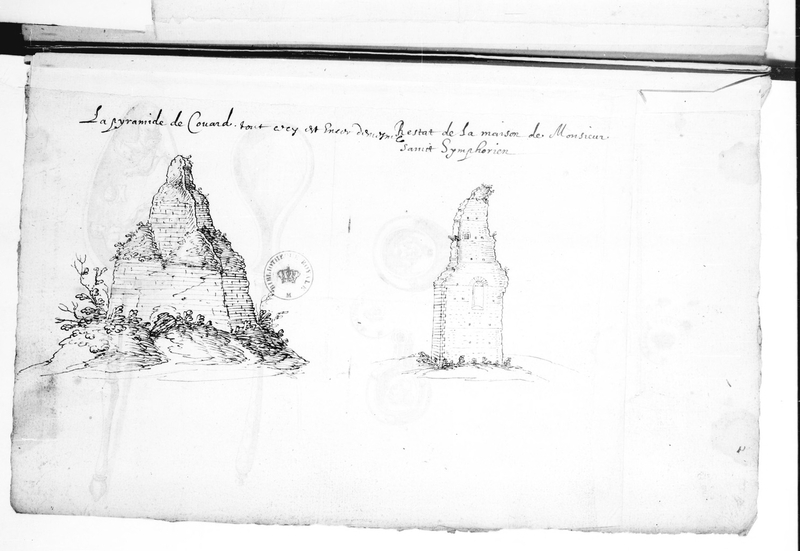 La pyramide de Couard. tout cecy est encor
Restat de la maison de Monsieur
sainct Symphorien
BIBLIOTHECÆ REGIÆ